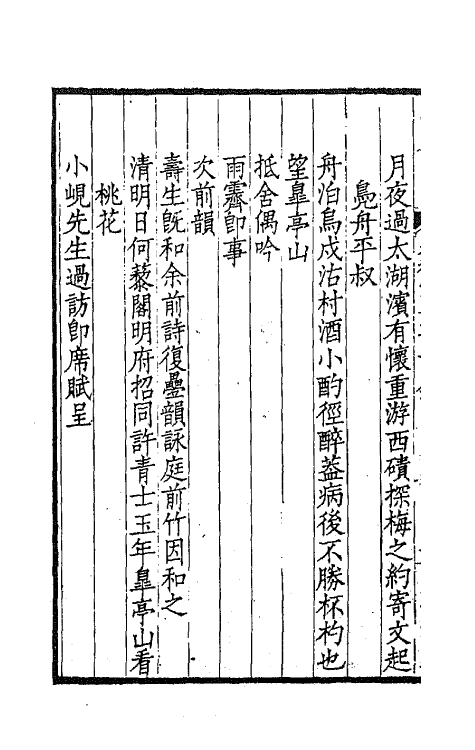 月夜過太湖濱有懷重游西磧探梅之約寄文起
鳧舟平叔
舟泊烏戍沽村酒小酌徑醉蓋病後不勝杯杓也
望臯亭山
抵舍偶吟
雨霽卽事
次前韻
壽生旣和余前詩復疊韻詠庭前竹因和之
清明日何藜閣明府招同許青士玉年臯亭山看
桃花
小峴先生過訪卽席賦呈